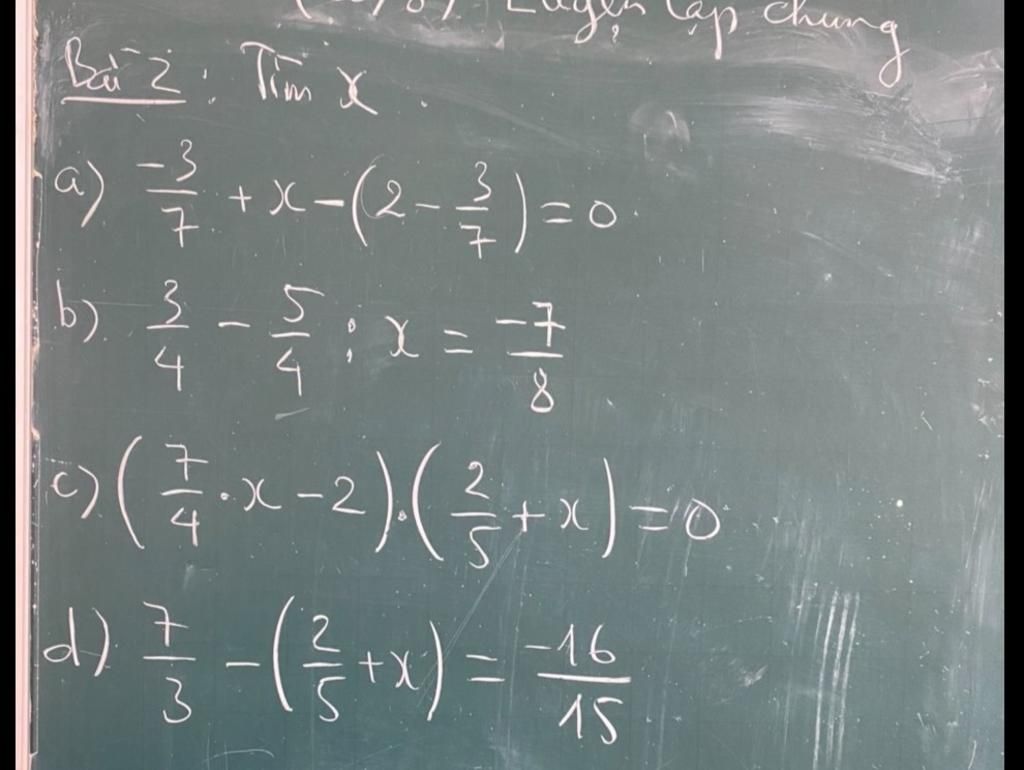 Luyện tập chung
Bài 2: Tìm x.
a) -3/7 + x - (2 - 3/7) = 0
b) 3/4 - 5/4 : x = -7/8
c) (7/4 . x - 2).(2/5 + x) = 0
d) 7/3 - (2/5 + x) = -16/15